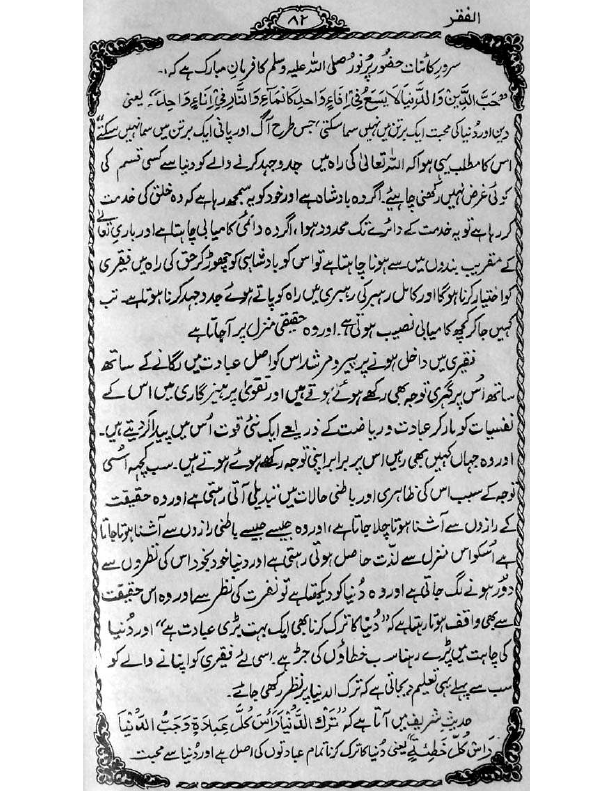 الفقر
۸۲
سرورِ کائنات حضور پُر نور صلی اللہ علیہ وسلم کا فرمانِ مبارک ہے کہ :۔
”حُبُّ الدِّیْنِ وَالدُّنْیَا لَا یَسَعُ فِیْ اِنَاءٍ وَاحِدٍ کَالْمَآءِ وَالنَّارِ فِیْ اِنَاءٍ وَاحِدٍ۔“ یعنی
دین اور دُنیا کی محبت ایک برتن میں نہیں سما سکتی، جس طرح آگ اور پانی ایک برتن میں سما نہیں سکتے“
اس کا مطلب یہی ہوا کہ اللہ تعالیٰ کی راہ میں جدوجہد کرنے والے کو دنیا سے کسی قسم کی
کوئی غرض نہیں رکھنی چاہیئے۔ اگر وہ بادشاہ ہے اور خود کو یہ سمجھ رہا ہے کہ وہ خلق کی خدمت
کر رہا ہے تو یہ خدمت کے دائرے تک محدود ہوا، اگر وہ دائمی کامیابی چاہتا ہے اور باری تعالیٰ
کے مقریب بندوں میں سے ہونا چاہتا ہے تو اس کو بادشاہی کو چھوڑ کر حق کی راہ میں فقیری
کو اختیار کرنا ہوگا اور کامل رہبر کی رہبری میں راہ کو پاتے ہوئے جدوجہد کرنا ہوتا ہے۔ تب
کہیں جا کر کچھ کامیابی نصیب ہوتی ہے۔ اور وہ حقیقی منزل پر آ جاتا ہے
فقیری میں داخل ہونے پر پیر و مرشد اس کو اصل عبادت میں لگانے کے ساتھ
ساتھ اُس پر گہری توجہ بھی رکھے ہوئے ہوتے ہیں اور تقویٰ پرہیزگاری میں اس کے
نفسیات کو مار کر عبادت و ریاضت کے ذریعے ایک نئی قوت اُس میں پیدا کر دیتے ہیں۔
اور وہ جہاں کہیں بھی رہیں اس پر برابر اپنی توجہ رکھے ہوئے ہوتے ہیں۔ سب کچھ اُسی
توجہ کے سبب اس کی ظاہری اور باطنی حالات میں تبدیلی آتی رہتی ہے اور وہ حقیقت
کے رازوں سے آشنا ہوتا چلا جاتا ہے، اور وہ جیسے جیسے باطنی رازوں سے آشنا ہوتا جاتا
ہے اُسکو اس منزل سے لذت حاصل ہوتی رہتی ہے اور دنیا خود بخود اس کی نظروں سے
دُور ہونے لگ جاتی ہے اور وہ دُنیا کو دیکھتا ہے تو نفرت کی نظر سے اور وہ اس حقیقت
سے بھی واقف ہوتا رہتا ہے کہ ”دُنیا کا ترک کرنا بھی ایک بہت بڑی عبادت ہے“ اور دُنیا
کی چاہت میں پڑے رہنا سب خطاؤں کی جڑ ہے۔ اسی لئے فقیری کو اپنانے والے کو
سب سے پہلے یہی تعلیم دیجاتی ہے کہ ترک الدنیا پر نظر رکھی جائے۔
حدیث شریف میں آتا ہے کہ ”تَرْکُ الدُّنْیَا رَاْسُ کُلِّ عِبَادَۃٍ وَحُبُّ الدُّنْیَا
رَاْسُ کُلِّ خَطِیْئَۃٍ“ یعنی دُنیا کا ترک کرنا تمام عبادتوں کی اصل ہے اور دُنیا سے محبت